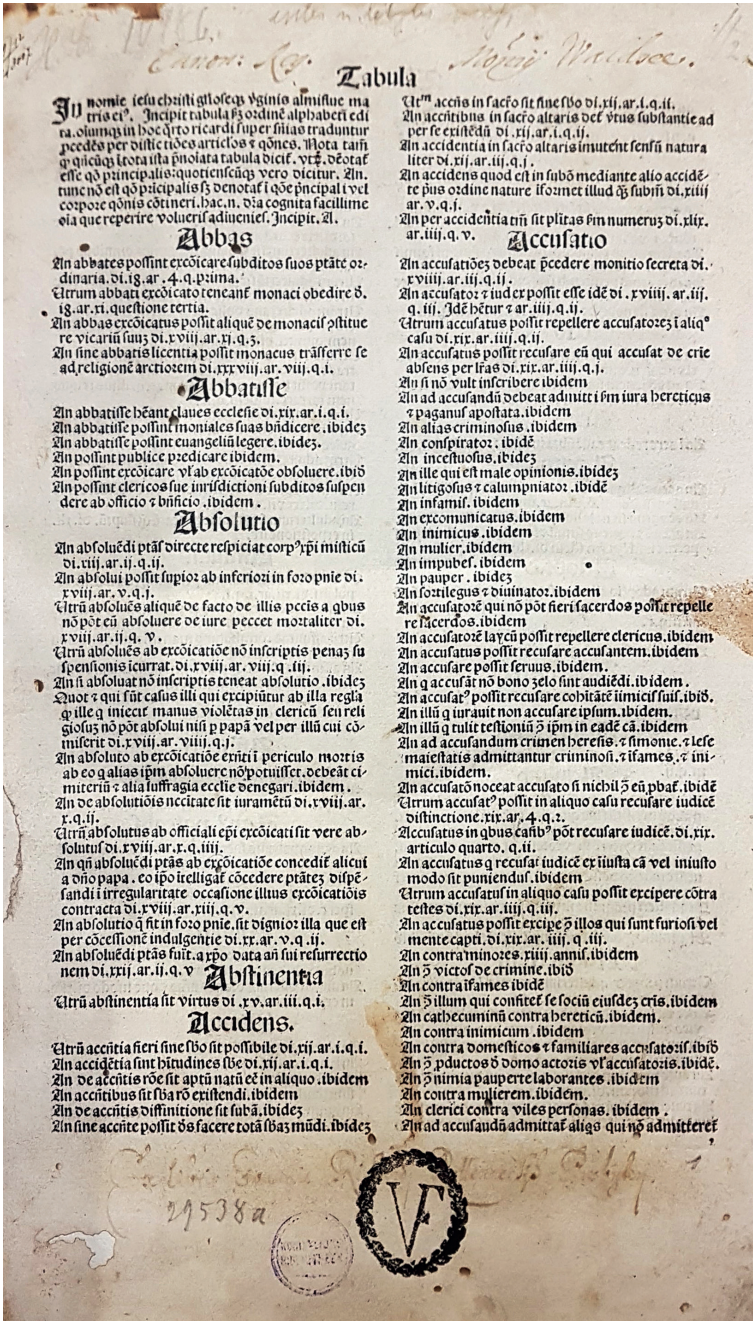 Tabula
In nomīe iesu christi gl̄loseqꝫ ṽginis almiflue ma
tris eiꝰ. Incipit tabula ẜꝫ ordinē alphabeti edi
ta. olumqꝫ in hoc q̄rto ricardi super s̄nias traduntur
ꝓcedēs per distīctiōes articl̄os ⁊ qōnes. Nota tam̄
esse qō prīcipalis: quotienscūqꝫ vero dicitur. An.
tunc nō est qō pricipalis ẜꝫ denotaꞇ̄ ī qōe p̄ncipal i vel
corpore qōnis cōtineri. hac .n. dr̄a cognita facillime
oīa que reperire volueris adiuenies. Incipit. A.
Abbas
An abbates possint excōicare subditos suos ptāte or-
dinaria. di. i8. ar. 4. q. prima.
Utrum abbati excōicato teneanꞇ̄ monaci obedire d̄.
i8. ar. xi. questione tertia.
An abbas excōicatus possit aliquē de monacis ꝯstitue
re vicariū suuꝫ di. xviij. ar. xj. q. 3.
An sine abbatis licentia possit monacus trāsferre se
ad religionē arctiorem di. xxxviij. ar. viij. q. i.
Abbatisse
An abbatisse hēant claues ecclesie di. xix. ar. i. q. i.
An abbatisse possint moniales suas bn̄dicere. ibideꝫ
An abbatisse possint euangeliū legere. ibideꝫ.
An possint publice predicare ibidem.
An possint excōicare vl̄ ab excōicatōe obsoluere. ibid̄
An possint clericos sue iurisdictioni subditos suspen
dere ab officio ⁊ bn̄ficio. ibidem.
Absolutio
An absoluēdi ptās directe respiciat corpꝰ xp̄i misticū
di. xiij. ar. ij. q. ij.
An absolui possit supior ab inferiori in foro pnīe di.
xviij. ar. v. q. j.
Utrū absoluēs aliquē de facto de illis pccīs a qbus
nō pōt eū absoluere de iure peccet mortaliter di.
xviij. ar. ij. q. v.
Utrū absoluēs ab excōicatiōe nō inscriptis penaꝫ su
spensionis icurrat. di. xviij. ar. viij. q. iij.
An si absoluat nō inscriptis teneat absolutio. ibideꝫ
Quot ⁊ qui sūt casus illi qui excipiūtur ab illa regla
ꝙ ille q iniecit manus violētas in clericū seu reli
giosuꝫ nō pōt absolui nisi ꝑ papā vel per illū cui cō-
miserit di. xviij. ar. viiij. q. j.
An absoluto ab excōicatiōe exn̄ti ī periculo mortis
ab eo q alias ip̄m absoluere nō potuisset. debeāt ci-
miteriū ⁊ alia suffragia ecclie denegari. ibidem.
An de absolutiōis nccitate sit iuramētū di. xviij. ar.
x. q. ij.
Utrū absolutus ab officiali ep̄i excōicati sit vere ab-
solutus di. xviij. ar. x. q. iiij.
An qn̄ absoluēdi ptās ab excōicatiōe concediꞇ̄ alicui
a dn̄o papa. eo ip̄o itelligaꞇ̄ cōcedere ptāteꝫ dispē-
sandi ī irregularitate occasione illius excōicatiōis
contracta di. xviij. ar. xiij. q. v.
An absolutio q̄ fit in foro pnīe. sit dignior illa que est
per cōcessionē indulgentie di. xx. ar. v. q. ij.
An absoluēdi ptās fuit. a xp̄o data an̄ sui resurrectio
nem di. xxij. ar. ij. q. v
Abstinentia
Utrū abstinentia sit virtus di. xv. ar. iij. q. i.
Accidens.
Utrū accn̄tia fieri sine sb̄o sit possibile di. xij. ar. i. q. i.
An accidētia sint h̄itudines sb̄e di. xij. ar. i. q. i.
An de accn̄tis rōe sit aptū natū eē in aliquo. ibidem
An accn̄tibus sit sb̄a rō existendi. ibidem
An de accn̄tis diffinitione sit subā. ibideꝫ
An sine accn̄te possit d̄s facere totā sb̄aꝫ mūdi. ibideꝫ
Utᵐ accn̄s in sacr̄o sit sine sb̄o di. xij. ar. i. q. ii.
An accn̄tibus in sacr̄o altaris deꞇ̄ v̄tus substantie ad
per se existēdū di. xij. ar. i. q. ij.
An accidentia in sacr̄o altaris imutent sensū natura
liter di. xij. ar. iij. q. j.
An accidens quod est in subō mediante alio accidē-
te pꝰus ordine nature īformet illud qꝫ subm̄ di. xiiij
ar. v. q. j.
An per accidētia tm̄ sit pl̄itas ẜm numeruꝫ di. xlix.
ar. iij. q. v.
Accusatio
An accusatiōeꝫ debeat p̄cedere monitio secreta di.
xviiij. ar. iij. q. ij.
An accusator ⁊ iudex possit esse idē di. xviiij. ar. iij.
q. iij. Idē hētur ⁊ ar. iij. q. ij.
Utrum accusatus possit repellere accusatoreꝫ ī aliqᵒ
casu di. xix. ar. iiij. q. ij.
An accusatus possit recusare eū qui accusat de crīe
absens per lr̄as di. xix. ar. iiij. q. j.
An si nō vult inscribere ibidem
An ad accusandū debeat admitti ẜm iura hereticus
⁊ paganus apostata. ibidem
An alias criminosus. ibidem
An conspirator. ibidē
An incestuosus. ibideꝫ
An ille qui est male opinionis. ibideꝫ
An litigosus ⁊ calumpniator. ibidē
An infamis. ibidem
An excomunicatus. ibidem
An inimicus. ibidem
An mulier. ibidem
An impubes. ibidem
An pauper. ibideꝫ
An sortilegus ⁊ diuinator. ibidem
An accusatorē qui nō pōt fieri sacerdos possit repelle
re sacerdos. ibidem
An accusatorē laycū possit repellere clericus. ibidem
An accusatus possit recusare accusantem. ibidem
An accusare possit seruus. ibidem.
An q accusāt nō bono ꝫelo sunt audiēdi. ibidem.
An accusatꝰ possit recusare cohitātē iimicis suis. ibid̄.
An illū q iurauit non accusare ipsum. ibidem.
An illū q tulit testioniū ꝯ̄ ip̄m in eadē cā. ibidem
An ad accusandum crimen heresis. ⁊ simonie. ⁊ lese
maiestatis admittantur criminosi. ⁊ īfames. ⁊ ini-
mici. ibidem.
An accusatōꝫ noceat accusato si nichil ꝯ̄ eū ꝓbaꞇ̄. ibidē
Utrum accusatꝰ possit in aliquo casu recusare iudicē
distinctione. xix. ar. 4. q. 2.
Accusatus in qbus casibꝰ pōt recusare iudicē. di. xix.
articulo quarto. q. ii.
An accusatus q recusat iudicē ex iusta cā vel iniusto
modo sit puniendus. ibidem
Utrum accusatus in aliquo casu possit excipere cōtra
testes di. xix. ar. iiij. q. iij.
An accusatus possit excipe ꝯ̄ illos qui sunt furiosi vel
mente capti. di. xix. ar. iiij. q. iij.
An contra minores. xiiij. annis. ibidem
An ꝯ̄ victos de crimine. ibid̄
An contra īfames ibidē
An ꝯ̄ illum qui confiteꞇ̄ se sociū eiusdeꝫ cr̄is. ibidem
An cathecuminū contra hereticū. ibidem.
An contra inimicum. ibidem
An contra domesticos ⁊ familiares accusatoris. ibid̄
An ꝯ̄ ꝓductos d̄ domo actoris vl̄ accusatoris. ibidē.
An ꝯ̄ nimia pauperte laborantes. ibidem
An contra mulierem. ibidem.
An clerici contra viles personas. ibidem.
An ad accusaudū admittaꞇ̄ aliqs qui nō admittereꞇ̄
29538a
VF